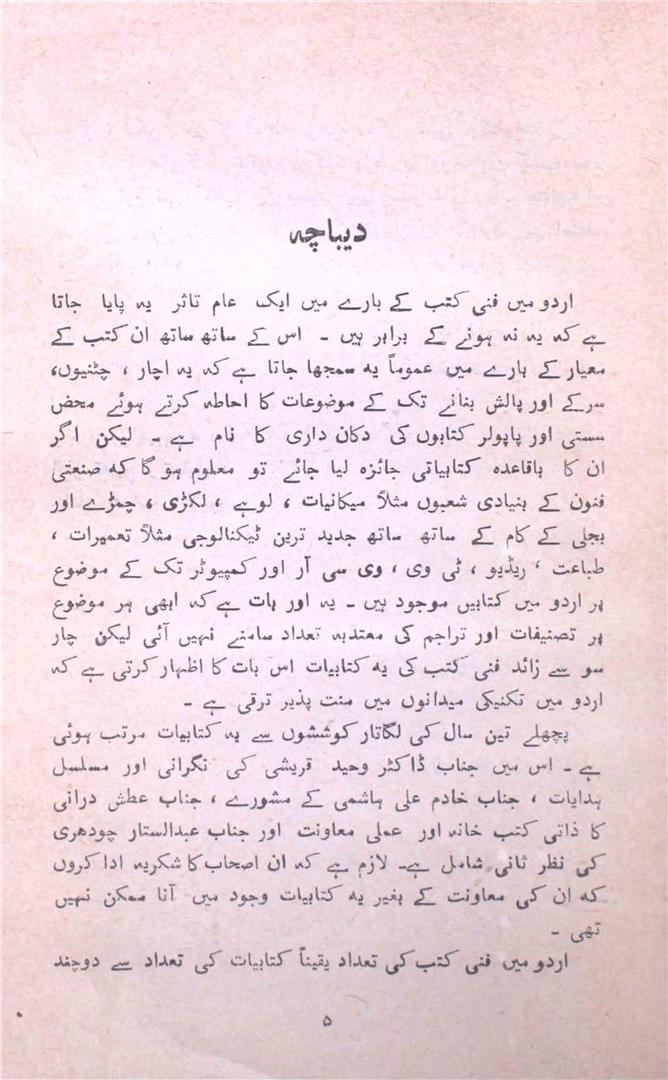 دیباچہ
اردو میں فنی کتب کے بارے میں ایک عام تاثر یہ پایا جاتا
ہے کہ یہ نہ ہونے کے برابر ہیں ۔ اس کے ساتھ ساتھ ان کتب کے
معیار کے بارے میں عموماً یہ سمجھا جاتا ہے کہ یہ اچار ، چٹنیوں،
سرکے اور پالش بنانے تک کے موضوعات کا احاطہ کرتے ہوئے محض
سستی اور پاپولر کتابوں کی دکان داری کا نام ہے ۔ لیکن اگر
ان کا باقاعدہ کتابیاتی جائزہ لیا جائے تو معلوم ہو گا کہ صنعتی
فنون کے بنیادی شعبوں مثلاً میکانیات ، لوہے ، لکڑی ، چمڑے اور
بجلی کے کام کے ساتھ ساتھ جدید ترین ٹیکنالوجی مثلاً تعمیرات ،
طباعت ، ریڈیو ، ٹی وی ، وی سی آر اور کمپیوٹر تک کے موضوع
پر اردو میں کتابیں موجود ہیں ۔ یہ اور بات ہے کہ ابھی ہر موضوع
پر تصنیفات اور تراجم کی معتدبہ تعداد سامنے نہیں آئی لیکن چار
سو سے زائد فنی کتب کی یہ کتابیات اس بات کا اظہار کرتی ہے کہ
اردو میں تکنیکی میدانوں میں منت پذیر ترقی ہے ۔
پچھلے تین سال کی لگاتار کوششوں سے یہ کتابیات مرتب ہوئی
ہے ۔ اس میں جناب ڈاکٹر وحید قریشی کی نگرانی اور مسلسل
ہدایات ، جناب خادم علی ہاشمی کے مشورے ، جناب عطش درانی
کا ذاتی کتب خانہ اور عملی معاونت اور جناب عبدالستار چودھری
کی نظر ثانی شامل ہے۔ لازم ہے کہ ان اصحاب کا شکریہ ادا کروں
کہ ان کی معاونت کے بغیر یہ کتابیات وجود میں آنا ممکن نہیں
تھی ۔
اردو میں فنی کتب کی تعداد یقیناً کتابیات کی تعداد سے دوچند
۵